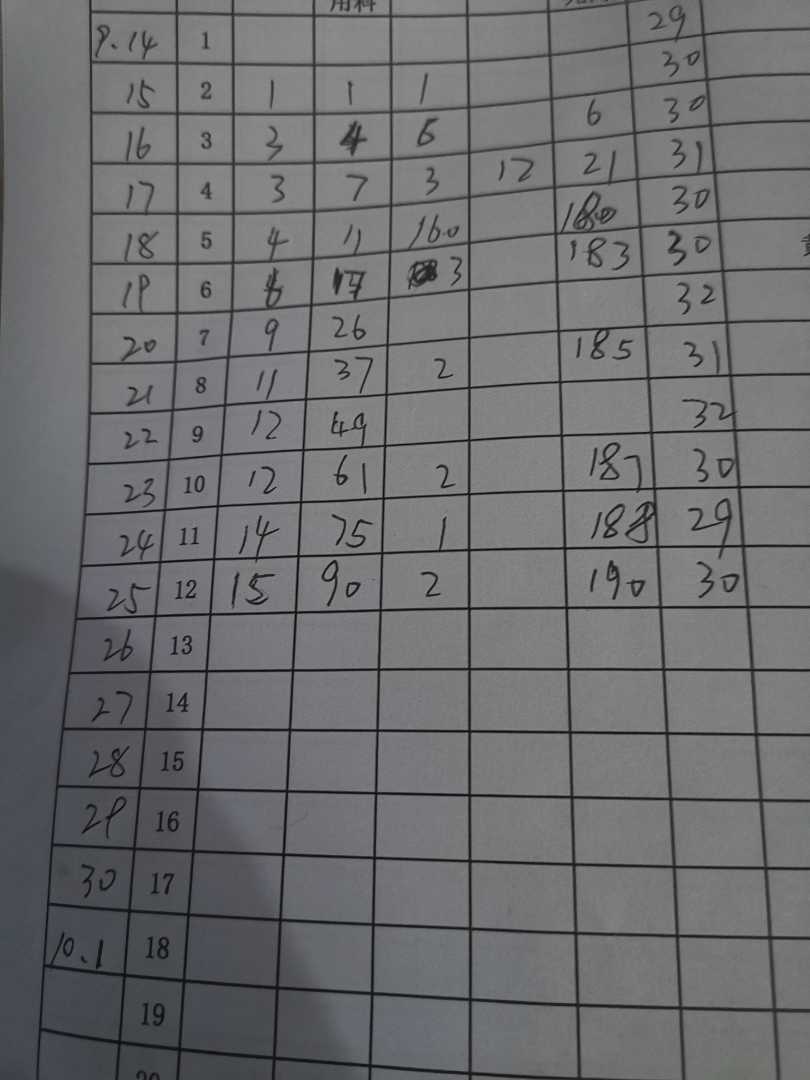 用料
9.14 1 29
15 2 1 1 1 30
16 3 3 4 6 6 30
17 4 3 7 3 12 21 31
18 5 4 11 160 180 30
19 6 17 3 183 30
20 7 9 26 32
21 8 11 37 2 185 31
22 9 12 49 32
23 10 12 61 2 187 30
24 11 14 75 1 188 29
25 12 15 90 2 190 30
26 13
27 14
28 15
29 16
30 17
10.1 18
19